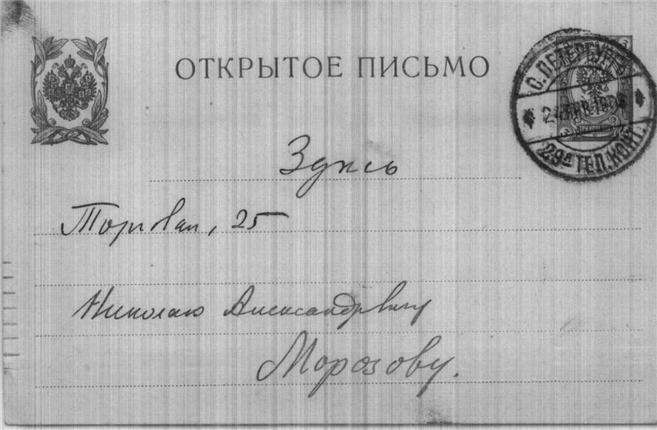 ОТКРЫТОЕ ПИСЬМО
С.ПЕТЕРБУРГЪ
29й ТЕЛ.КОНТ.
Здѣсь
Торговая, 25
Николаю Александровичу
Морозову.